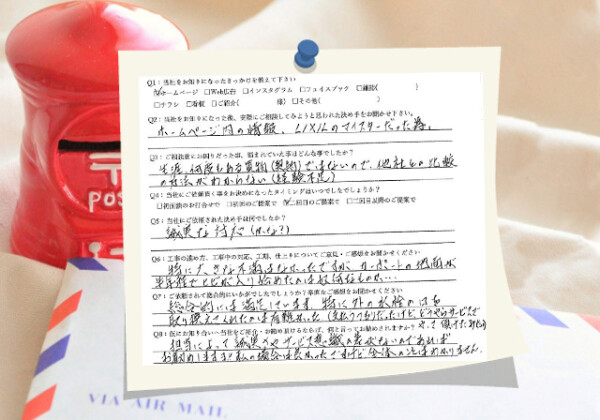 〒
POS
Q1：当社をお知りになったきっかけを教えて下さい
☑ホームページ □Web広告 □インスタグラム □フェイスブック □雑誌( )
□チラシ □看板 □ご紹介( 様) □その他( )
Q2：当社をお知りになった後、実際にご相談してみようと思われた決め手をお聞かせ下さい。
ホームページ内の情報、LIXILのマイスターだった為。
Q3：ご相談前にお困りだった事、悩まれていた事はどんな事でしたか？
生涯、何度もある買物(契約)ではないので、他社との比較
の方法がわからない(経験不足)
Q4：当社にご依頼頂く事をお決めになったタイミングはいつでしたでしょうか？
□初回面談のお打合せで □初回のご提案で ☑二回目のご提案で □二回目以降のご提案で
Q5：当社にご依頼された決め手は何でしたか？
誠実な対応(かな？)
Q6：工事の進め方、工事中の対応、工期、仕上りについてご意見・ご感想をお聞かせください
特に大きな不満はなかったですが カーポートの地面が
半年程でヒビが入り始めたのは残念なものか…
Q7：ご依頼されて総合的にいかがでしたでしょうか？率直なご感想をお聞かせください
総合的には満足しています 特に外の水栓の
取り換えてくれたのは有難かった
Q8：仮にお知り合いへ当社をご紹介・お勧め頂けるならば、何と言ってお勧めされますか？
担当によって誠実さやサービス意識の差がないのであれば
お勧めしますネ 私の場合は良かったですけど 全体の
VIA AIR MAIL